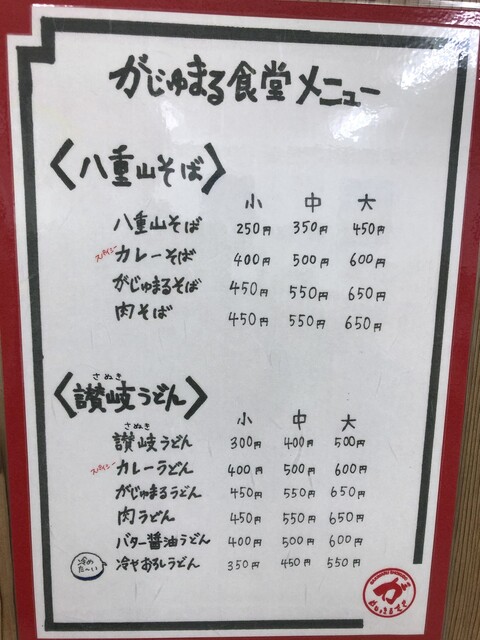 がじゅまる食堂メニュー
〈八重山そば〉
小 中 大
八重山そば 250円 350円 450円
スパイシー カレーそば 400円 500円 600円
がじゅまるそば 450円 550円 650円
肉そば 450円 550円 650円
さぬき
〈讃岐うどん〉
小 中 大
さぬき
讃岐うどん 300円 400円 500円
スパイシー カレーうどん 400円 500円 600円
がじゅまるうどん 450円 550円 650円
肉うどん 450円 550円 650円
バター醤油うどん 400円 500円 600円
冷めた〜い 冷やおろしうどん 350円 450円 550円